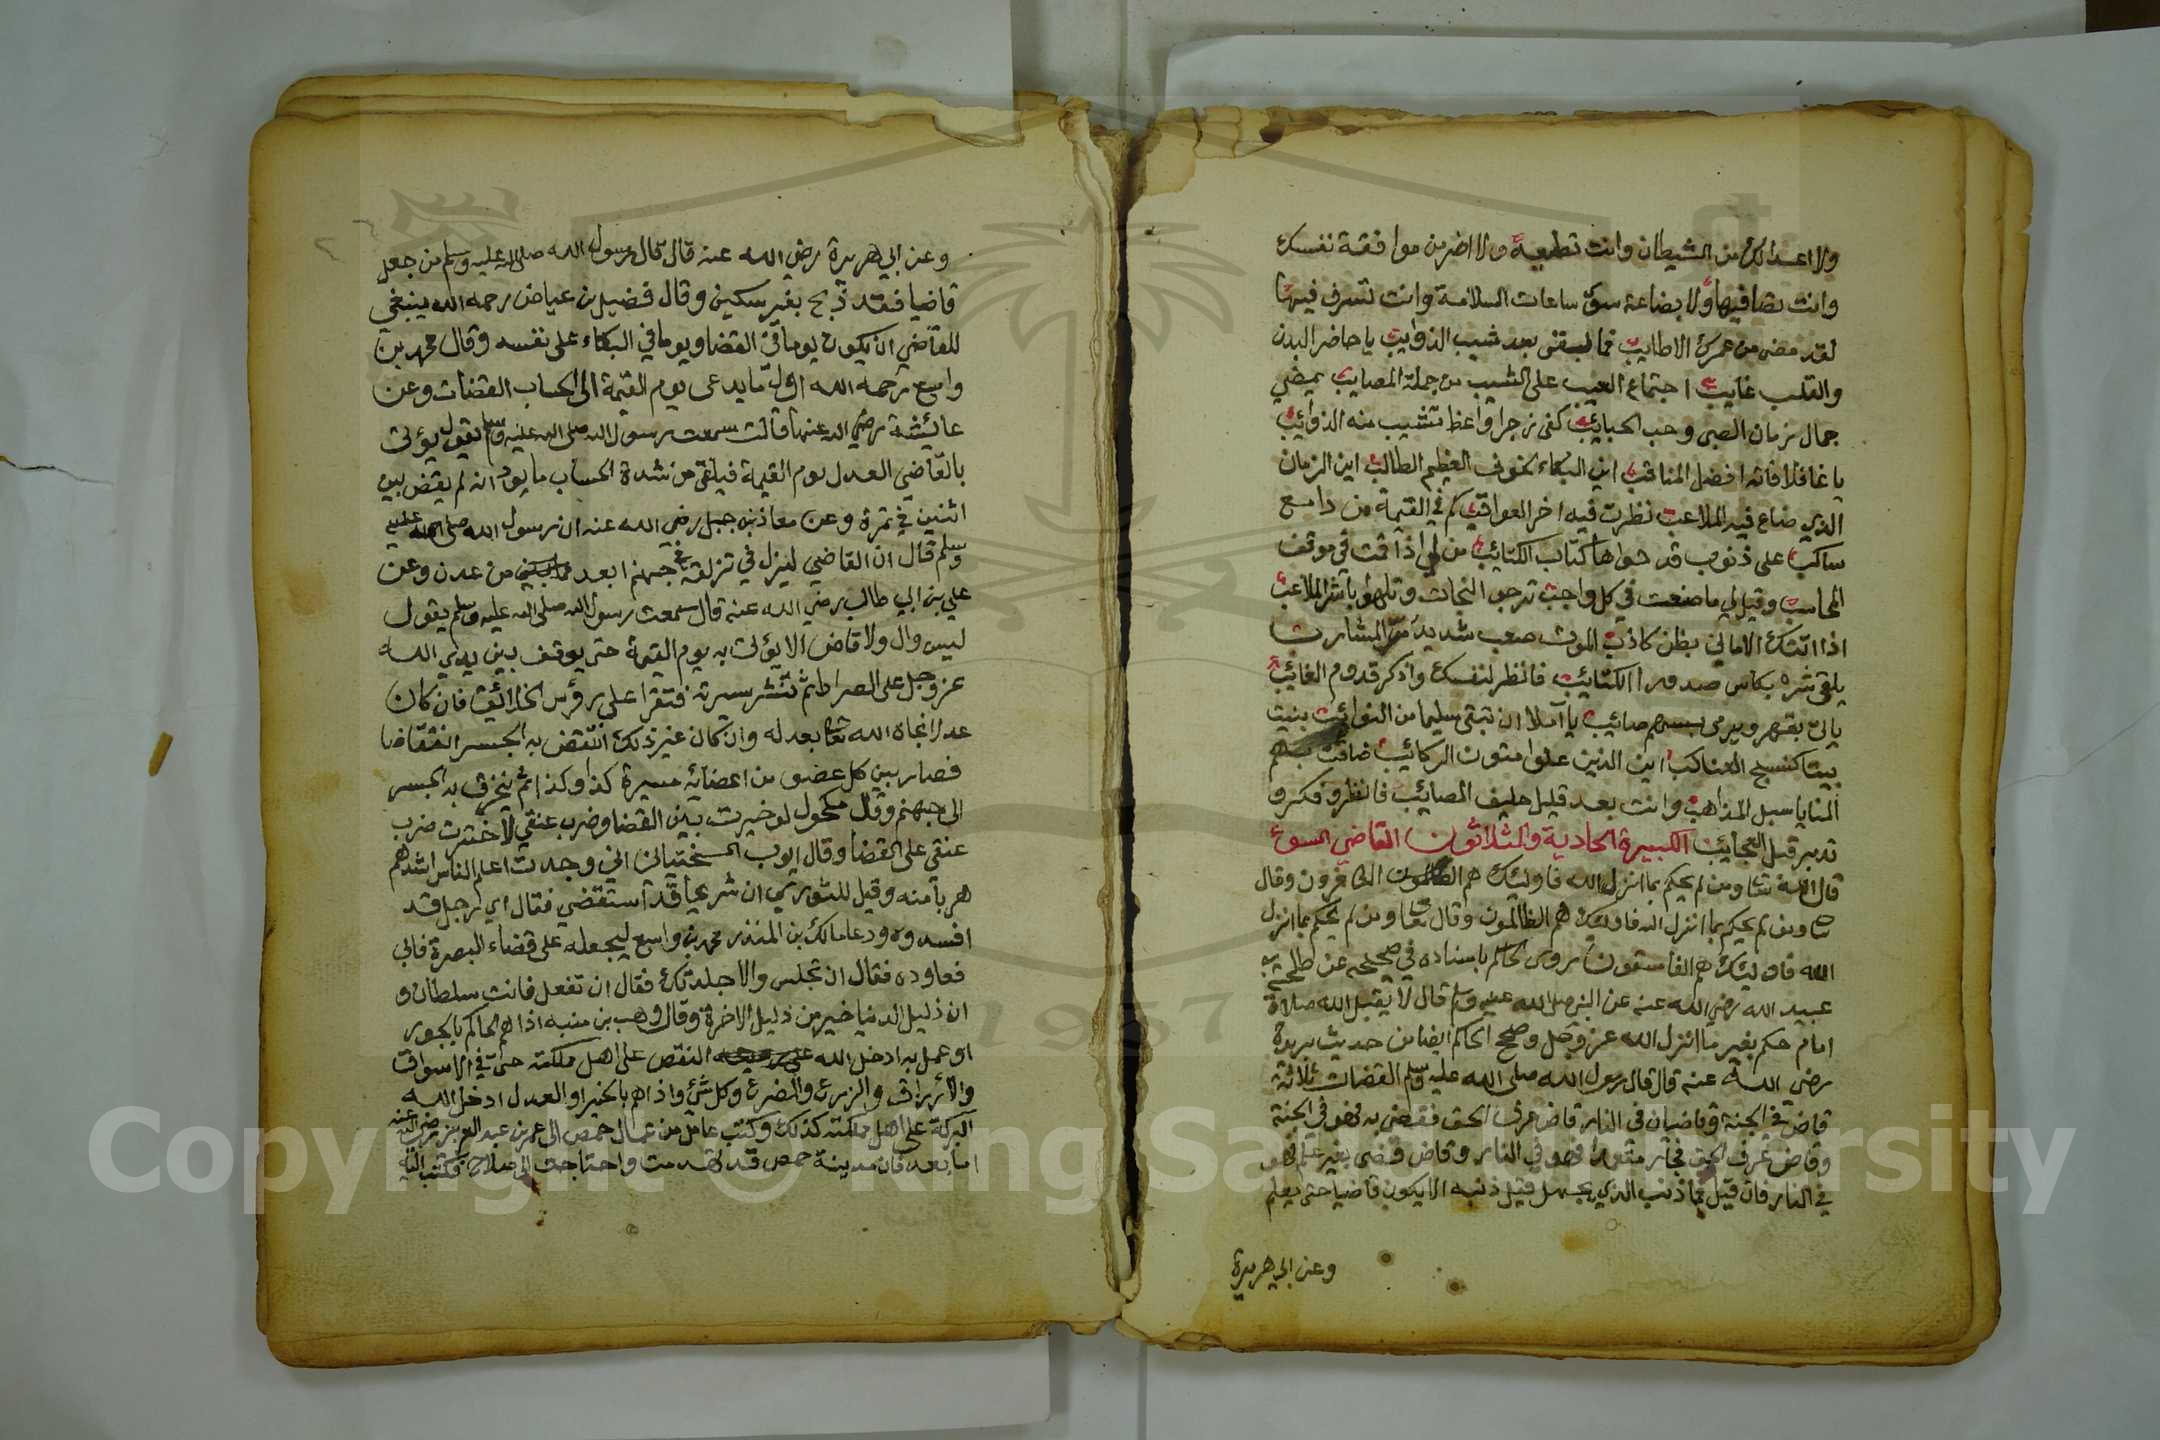 ولا اعدا لك من الشيطان وانت تطيعه ولا اضر من موافقة نفسك
وانت تصافيها ولا بضاعة سوى ساعات السلامة وانت تسرف فيها
لقد مضى من عمرك الاطايب فما بقى بعد شيب الذوايب يا حاضر البدن
والقلب غايب اجتماع العيب على الشيب من جملة المصايب يمضي
جمال زمان الصبى وحب الحبائب كفى زجرا واعظ تشيب منه الذوائب
يا غافلا فاته افضل المناقب اين البكاء لخوف العظيم الطالب اين الزمان
الذي ضاع فيه الملاعب نظرت فيه اخر العواقب كم في القيمة من دامع
ساكب على ذنوب قد حواها كتاب الكتائب من لي اذا قمت في موقف
المحاسب وقيل لي ما صنعت في كل واجب ترجو النجات وتلهو باشر الملاعب
اذا اتتك الاماني بظن كاذب الموت صعب شديد مر المشارب
يلقى شره بكاس صدور الكتائب فانظر لنفسك واذكر قدوم الغائب
ياتي بقهر ويرمى بسهم صائب يا آملا ان تبقى سليما من النوائب بنيت
بيتا كنسج العناكب اين الذين علوا متون الركائب ضاقت بهم
المنايا سبل المذاهب وانت بعد قليل حليف المصائب فانظر وفكر و
تدبر قبل العجائب الكبيرة الحادية والثلاثون القاضي السوء
قال الله تعا ومن لم يحكم بما انزل الله فاولئك هم الكافرون وقال
تعا ومن لم يحكم بما انزل الله فاولئك هم الظالمون وقال تعا ومن لم يحكم بما انزل
الله فاولئك هم الفاسقون روى الحاكم باسناده في صحيحه عن طلحة بن
عبيد الله رضي الله عنه عن النبي صلى الله عليه وسلم قال لا يقبل الله صلاة
امام حكم بغير ما انزل الله عز وجل وصحح الحاكم ايضا من حديث بريدة
رضى الله عنه قال قال رسول الله صلى الله عليه وسلم القضات ثلاثة
قاض في الجنة وقاضيان في النار قاض عرف الحق فقضى به فهو في الجنة
وقاض عرف الحق فجار متعمدا فهو في النار وقاض قضى بغير علم فهو
في النار فان قيل فما ذنب الذي يجهل قيل ذنبه الا يكون قاضيا حتى يعلم
وعن ابي هريرة
وعن ابي هريرة رضي الله عنه قال قال رسول الله صلى الله عليه وسلم من جعل
قاضيا فقد ذبح بغير سكين وقال فضيل بن عياض رحمه الله ينبغي
للقاضي ان يكون يوما في القضا ويوما في البكاء على نفسه وقال محمد بن
واسع رحمه الله اول ما يدعى يوم القيمة الى الحساب القضات وعن
عائشة رضي الله عنها قالت سمعت رسول الله صلى الله عليه وسلم يقول يؤتى
بالقاضي العدل يوم القيمة فيلقى من شدة الحساب ما يود انه لم يقض بين
اثنين في تمرة وعن معاذ بن جبل رضي الله عنه ان رسول الله صلى الله عليه
وسلم قال ان القاضي لينزل في تزلقه في جهنم ابعد من عدن وعن
علي بن ابي طالب رضي الله عنه قال سمعت رسول الله صلى الله عليه وسلم يقول
ليس وال ولا قاض الا يؤتى به يوم القيمة حتى يوقف بين يدي الله
عز وجل على الصراط ثم تنشر سيرته فتقرا على رؤس الخلائق فان كان
عدلا انجاه الله تعا بعدله وان كان غير ذلك انتقض به الجسر انتقاضا
فصار بين كل عضو من اعضائه مسيرة كذا وكذا ثم ينخرق به الجسر
الى جهنم وقال مكحول لو خيرت بين القضا وضرب عنقي لاخترت ضرب
عنقي على القضا وقال ايوب السختياني اني وجدت اعلم الناس اشدهم
هربا منه وقيل للثوري ان شريحا قد استقضي فقال اي رجل قد
افسدوه ودعا مالك بن المنذر محمد بن واسع ليجعله على قضاء البصرة فابى
فعاوده فقال ان تجلس والا جلدتك فقال ان تفعل فانت سلطان و
ان ذليل الدنيا خير من ذليل الاخرة وقال وهب بن منبه اذا هم الحاكم بالجور
او عمل به ادخل الله النقص على اهل مملكته حتى في الاسواق
والارزاق والزرع والضرع وكل شئ واذا هم بالخير او العدل ادخل الله
البركة على اهل مملكته كذلك وكتب عامل من عمال حمص الى عمر بن عبد العزيز رضي الله عنه
اما بعد فان مدينة حمص قد تهدمت واحتاجت الى صلاح فكتب اليه
Copyright © King Saud University
1957